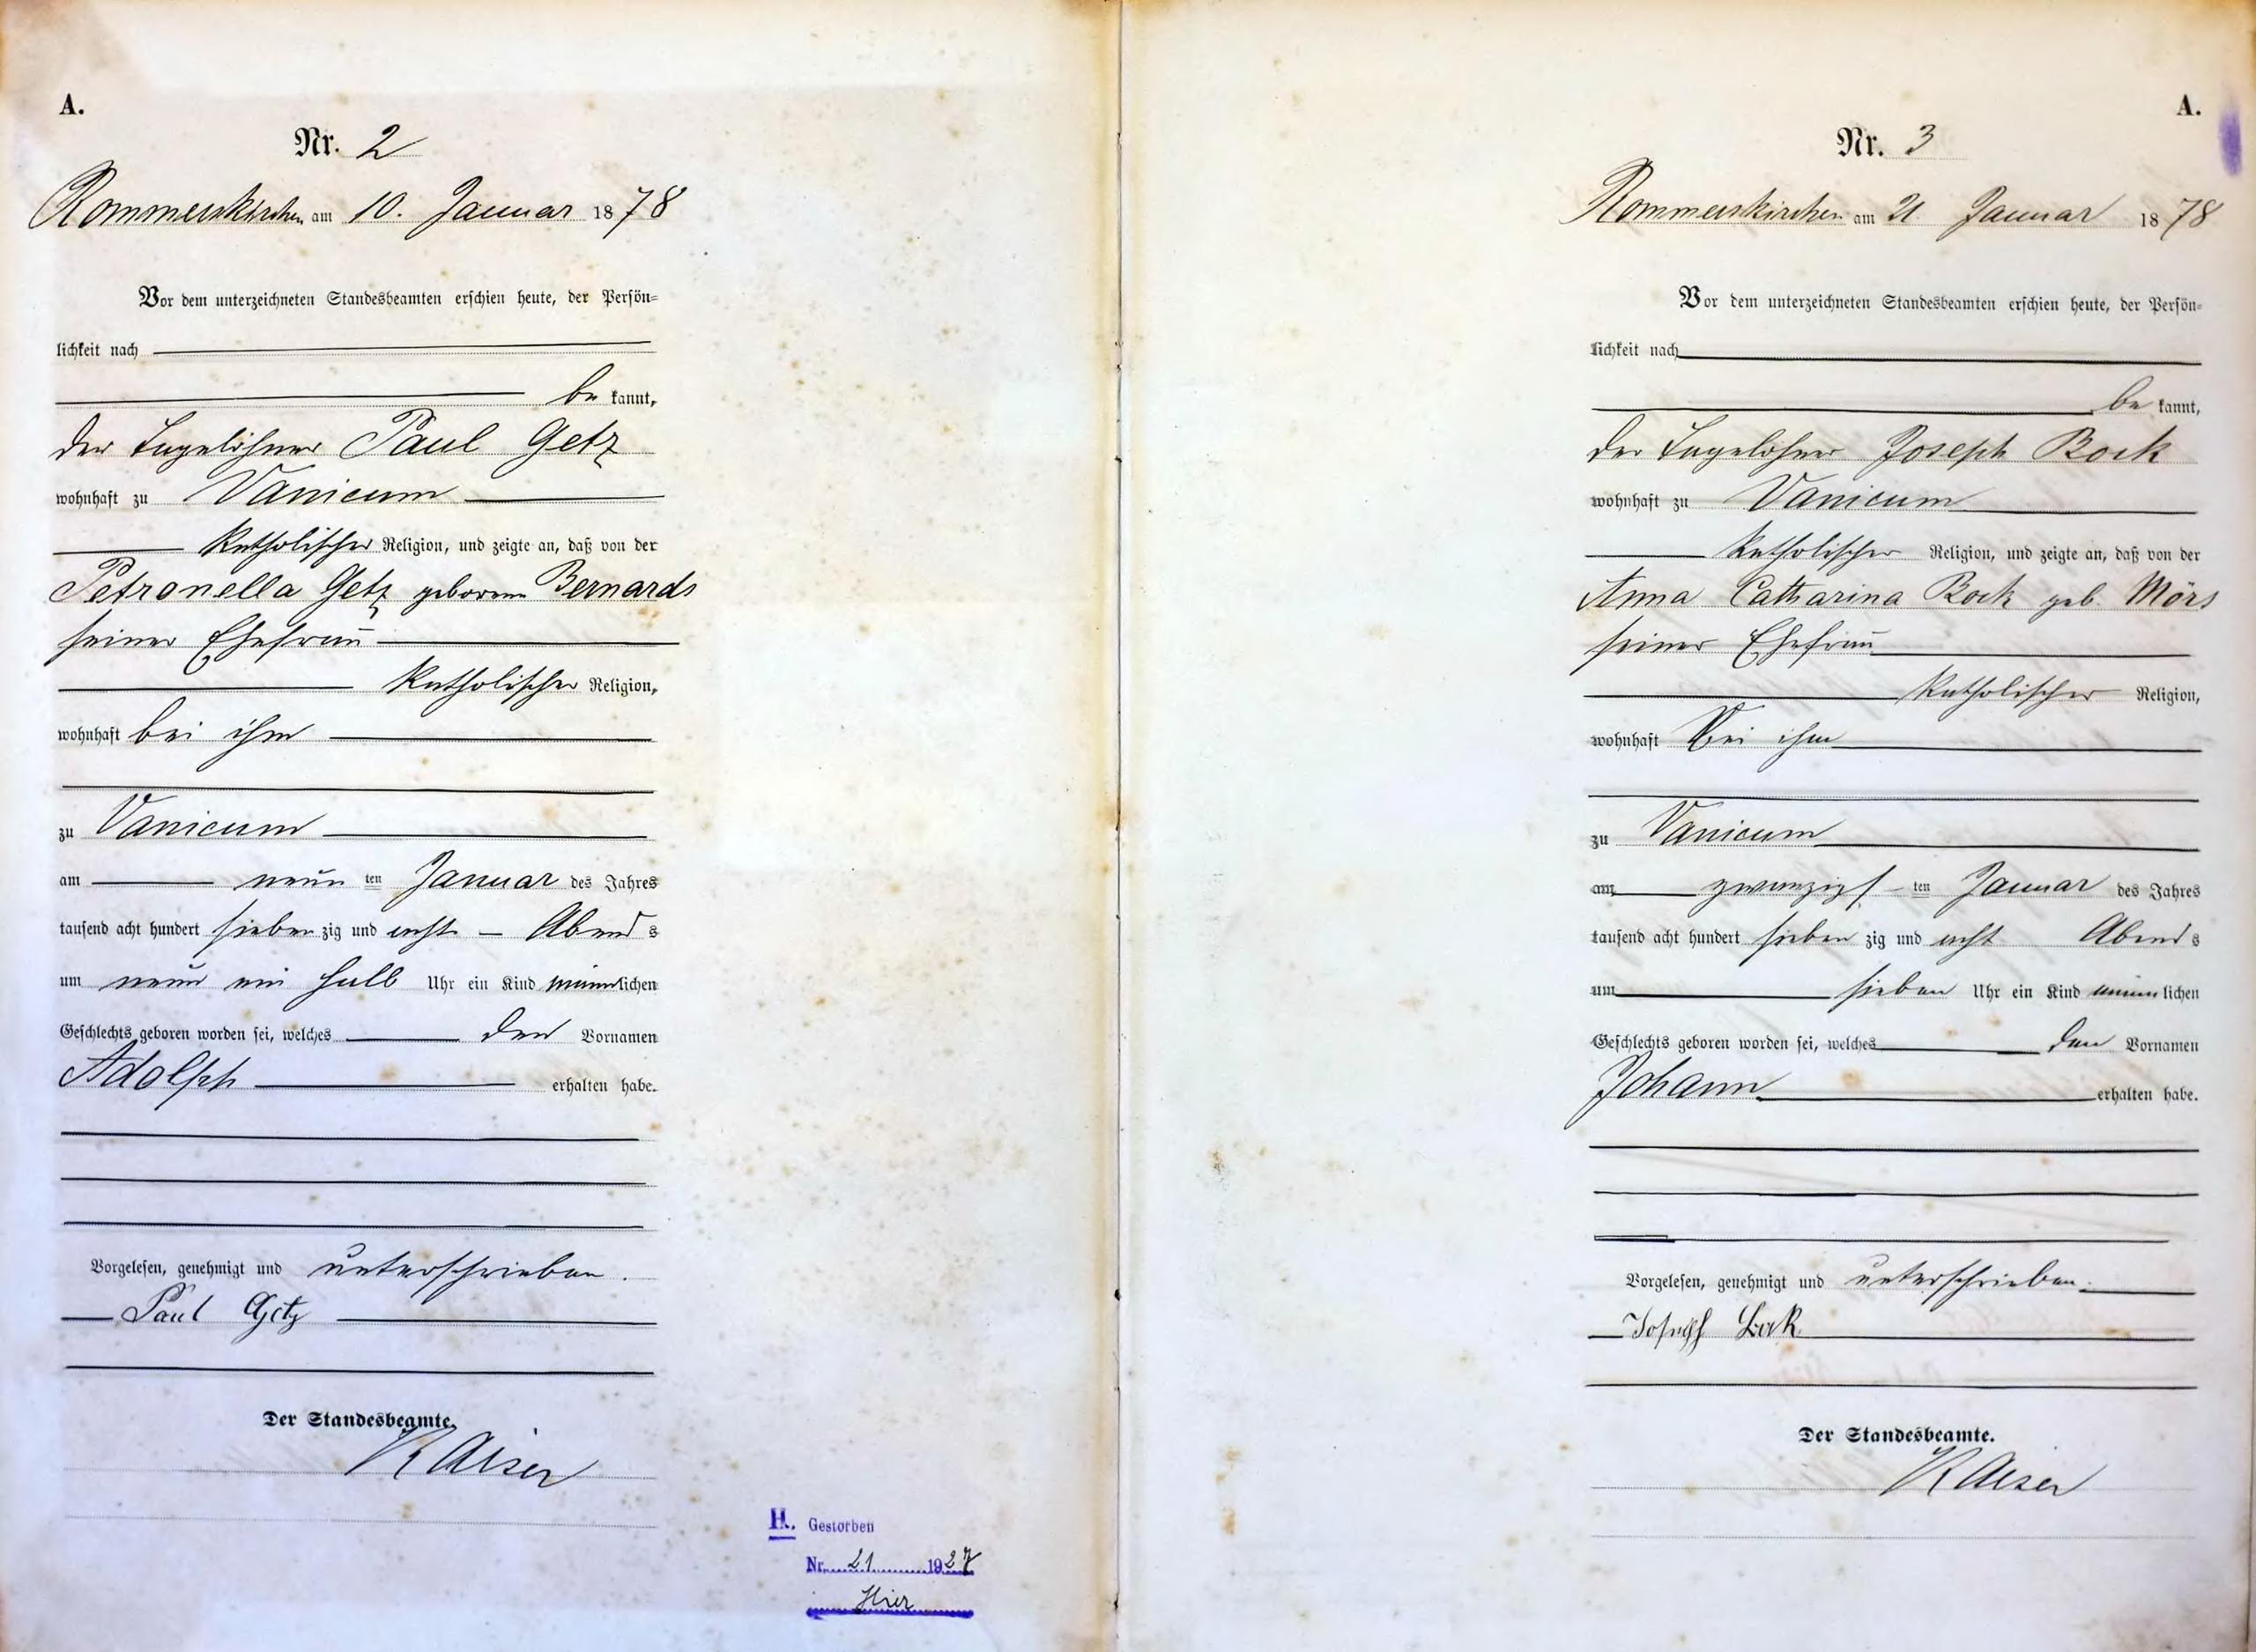 A.
Nr. 2
Rommerskirchen am 10. Januar 1878
Vor dem unterzeichneten Standesbeamten erschien heute, der Persön=
lichkeit nach
be kannt,
der Tagelöhner Paul Getz
wohnhaft zu Vanicum
katholischer Religion, und zeigte an, daß von der
Petronella Getz geborene Bernards
seiner Ehefrau
katholischer Religion,
wohnhaft bei ihm
zu Vanicum
am neun ten Januar des Jahres
tausend acht hundert sieben zig und acht Abend s
um neun ein halb Uhr ein Kind männlichen
Geschlechts geboren worden sei, welches den Vornamen
Adolph erhalten habe.
Vorgelesen, genehmigt und unterschrieben.
Paul Getz
Der Standesbeamte.
Kaiser
H. Gestorben
Nr. 21 1927
Hier
A.
Nr. 3
Rommerskirchen am 21. Januar 1878
Vor dem unterzeichneten Standesbeamten erschien heute, der Persön=
lichkeit nach
be kannt,
der Tagelöhner Joseph Bock
wohnhaft zu Vanicum
katholischer Religion, und zeigte an, daß von der
Anna Catharina Bock geb. Mörs
seiner Ehefrau
katholischer Religion,
wohnhaft bei ihm
zu Vanicum
am zwanzigs ten Januar des Jahres
tausend acht hundert sieben zig und acht Abend s
um sieben Uhr ein Kind männlichen
Geschlechts geboren worden sei, welches den Vornamen
Johann erhalten habe.
Vorgelesen, genehmigt und unterschrieben.
Joseph Bock
Der Standesbeamte.
Kaiser